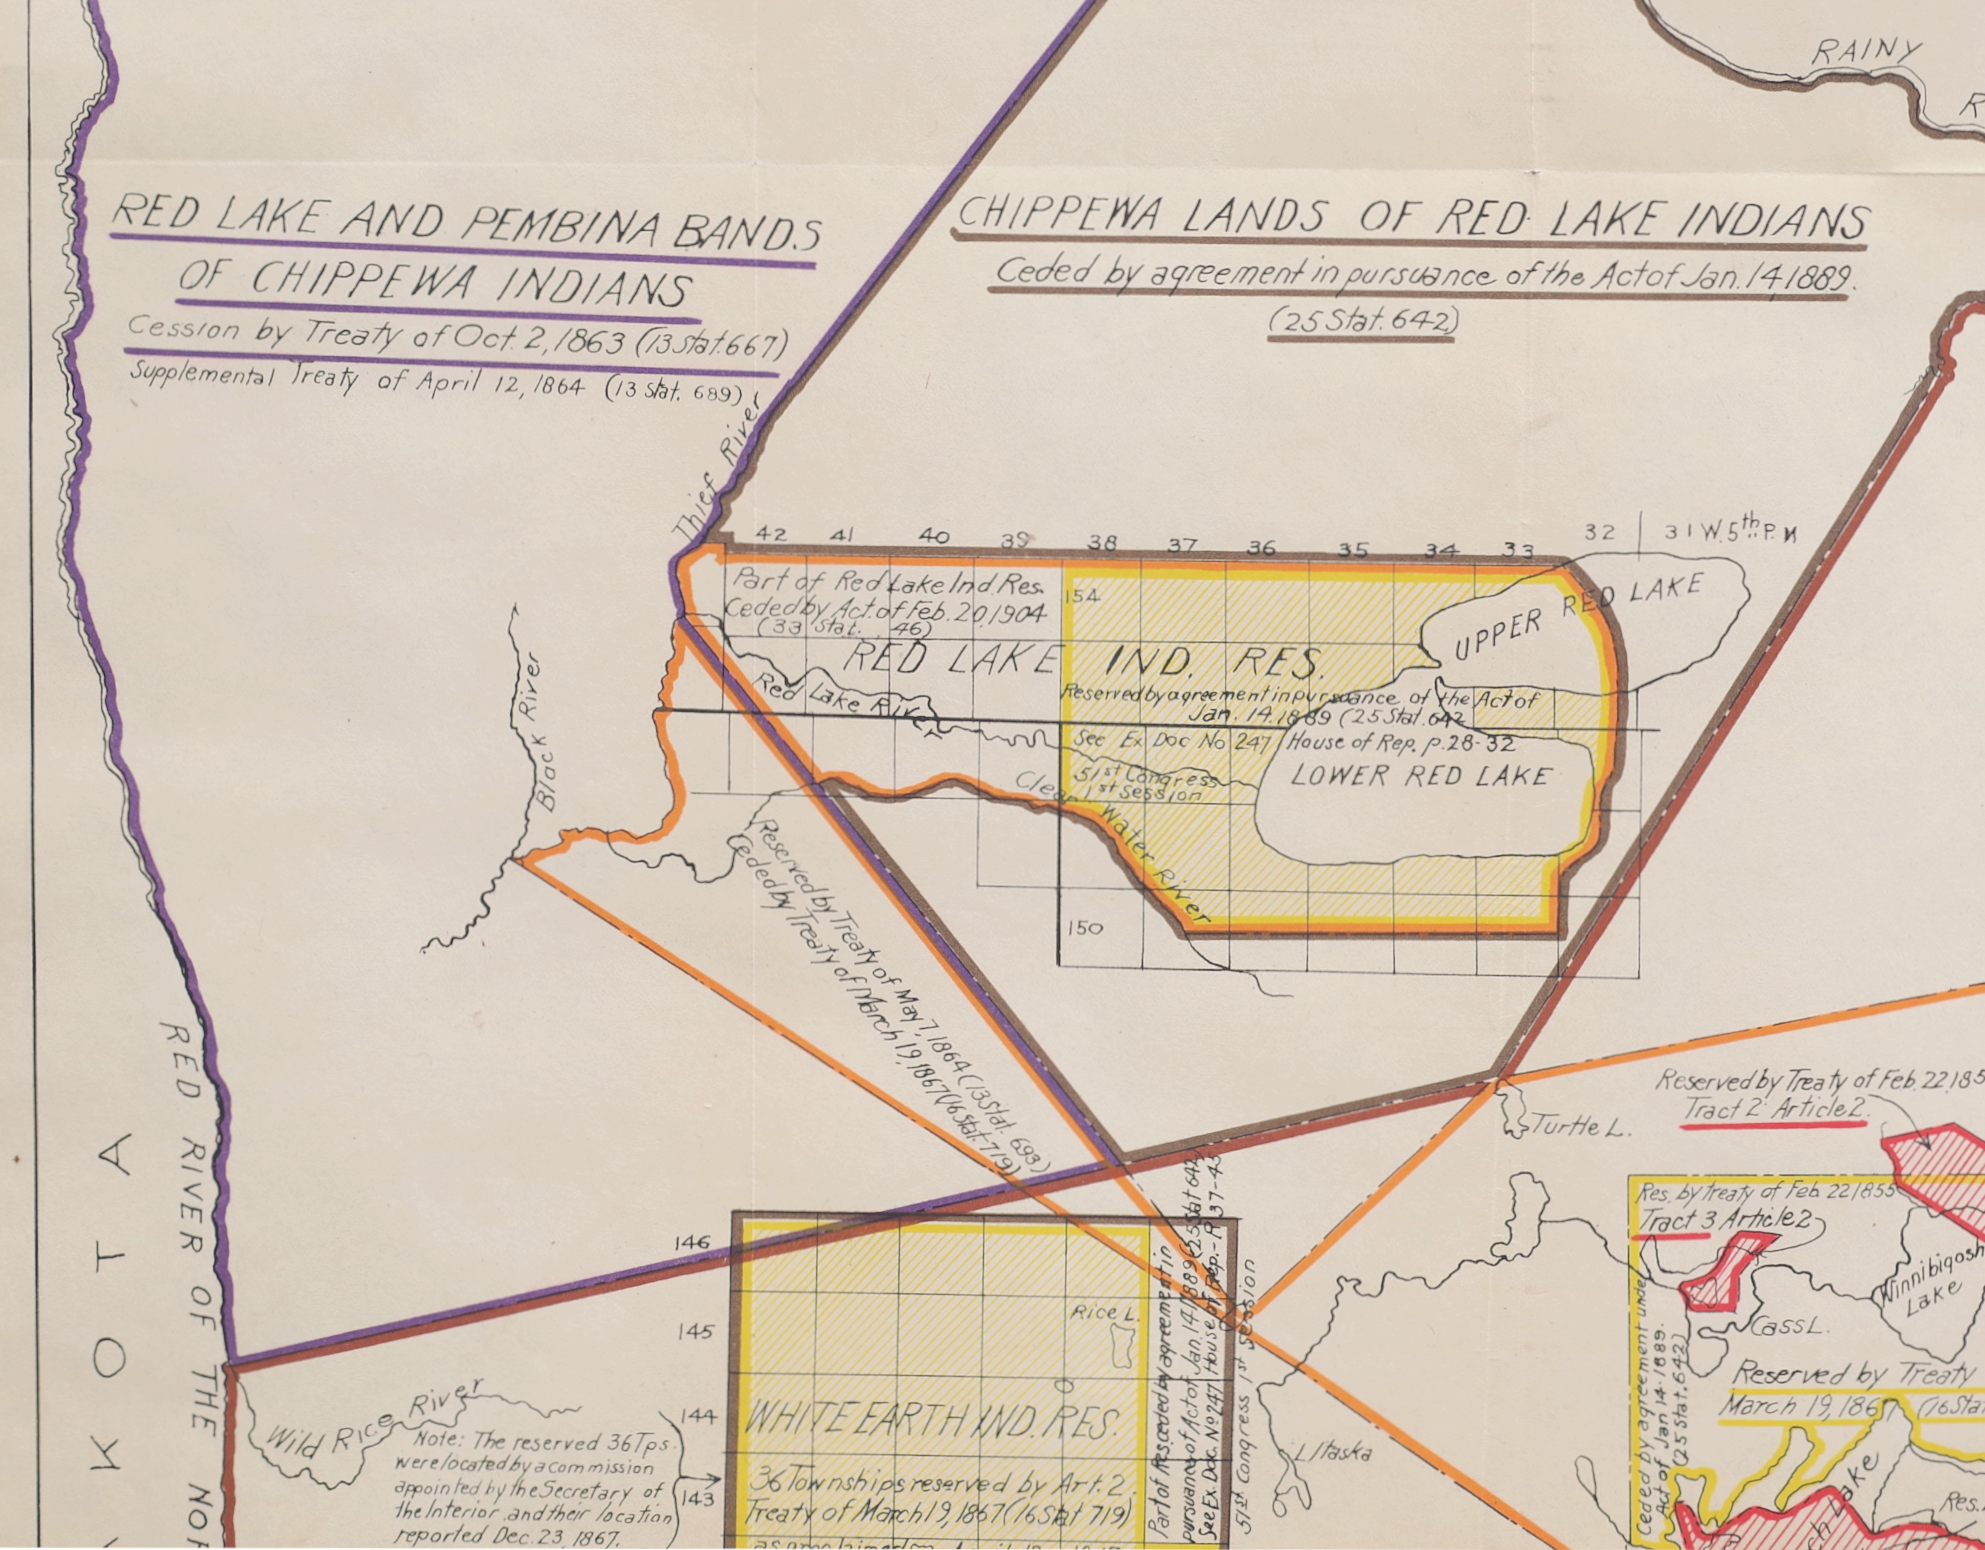 RAINY
R
RED LAKE AND PEMBINA BANDS
OF CHIPPEWA INDIANS
Cession by Treaty of Oct. 2, 1863 (13 Stat. 667)
Supplemental Treaty of April 12, 1864 (13 Stat. 689)
CHIPPEWA LANDS OF RED LAKE INDIANS
Ceded by agreement in pursuance of the Act of Jan. 14, 1889.
(25 Stat. 642)
Thief River
42 41 40 39 38 37 36 35 34 33 32 31 W. 5th P. M
Part of Red Lake Ind. Res.
Ceded by Act. of Feb. 20, 1904
(33 Stat. 46)
154
UPPER RED LAKE
RED LAKE IND. RES.
Reserved by agreement in pursuance of the Act of
Jan. 14. 1889 (25 Stat. 642
Red Lake River
See Ex Doc No 247 House of Rep. p. 28-32
51st Congress
1st Session
LOWER RED LAKE
Clear Water River
150
Black River
Reserved by Treaty of May 7, 1864 (13 Stat. 693)
Ceded by Treaty of March 19, 1867 (16 Stat. 719)
RED RIVER OF THE NOR
KOTA
Turtle L.
Reserved by Treaty of Feb. 22, 185
Tract 2 Article 2.
Res. by treaty of Feb. 22 1855
Tract 3 Article 2
Winnibigosh
Lake
Cass L.
Reserved by Treaty
March 19, 1867 (16 Sta
Ceded by agreement under
Act of Jan 14-1889.
(25 Stat. 642)
ch Lake
Res.
146
145
144
143
Rice L.
WHITE EARTH IND. RES.
36 Townships reserved by Art. 2.
Treaty of March 19, 1867 (16 Stat 719)
Part of Res. ceded by agreement in
pursuance of Act of Jan. 14, 1889 (25 Stat 642
See Ex. Doc. No 247 House of Rep. - P. 37-43
51st Congress 1st Session
L Itaska
Wild Rice River
Note: The reserved 36 Tps.
were located by a commission
appointed by the Secretary of
the Interior and their location
reported Dec. 23, 1867.